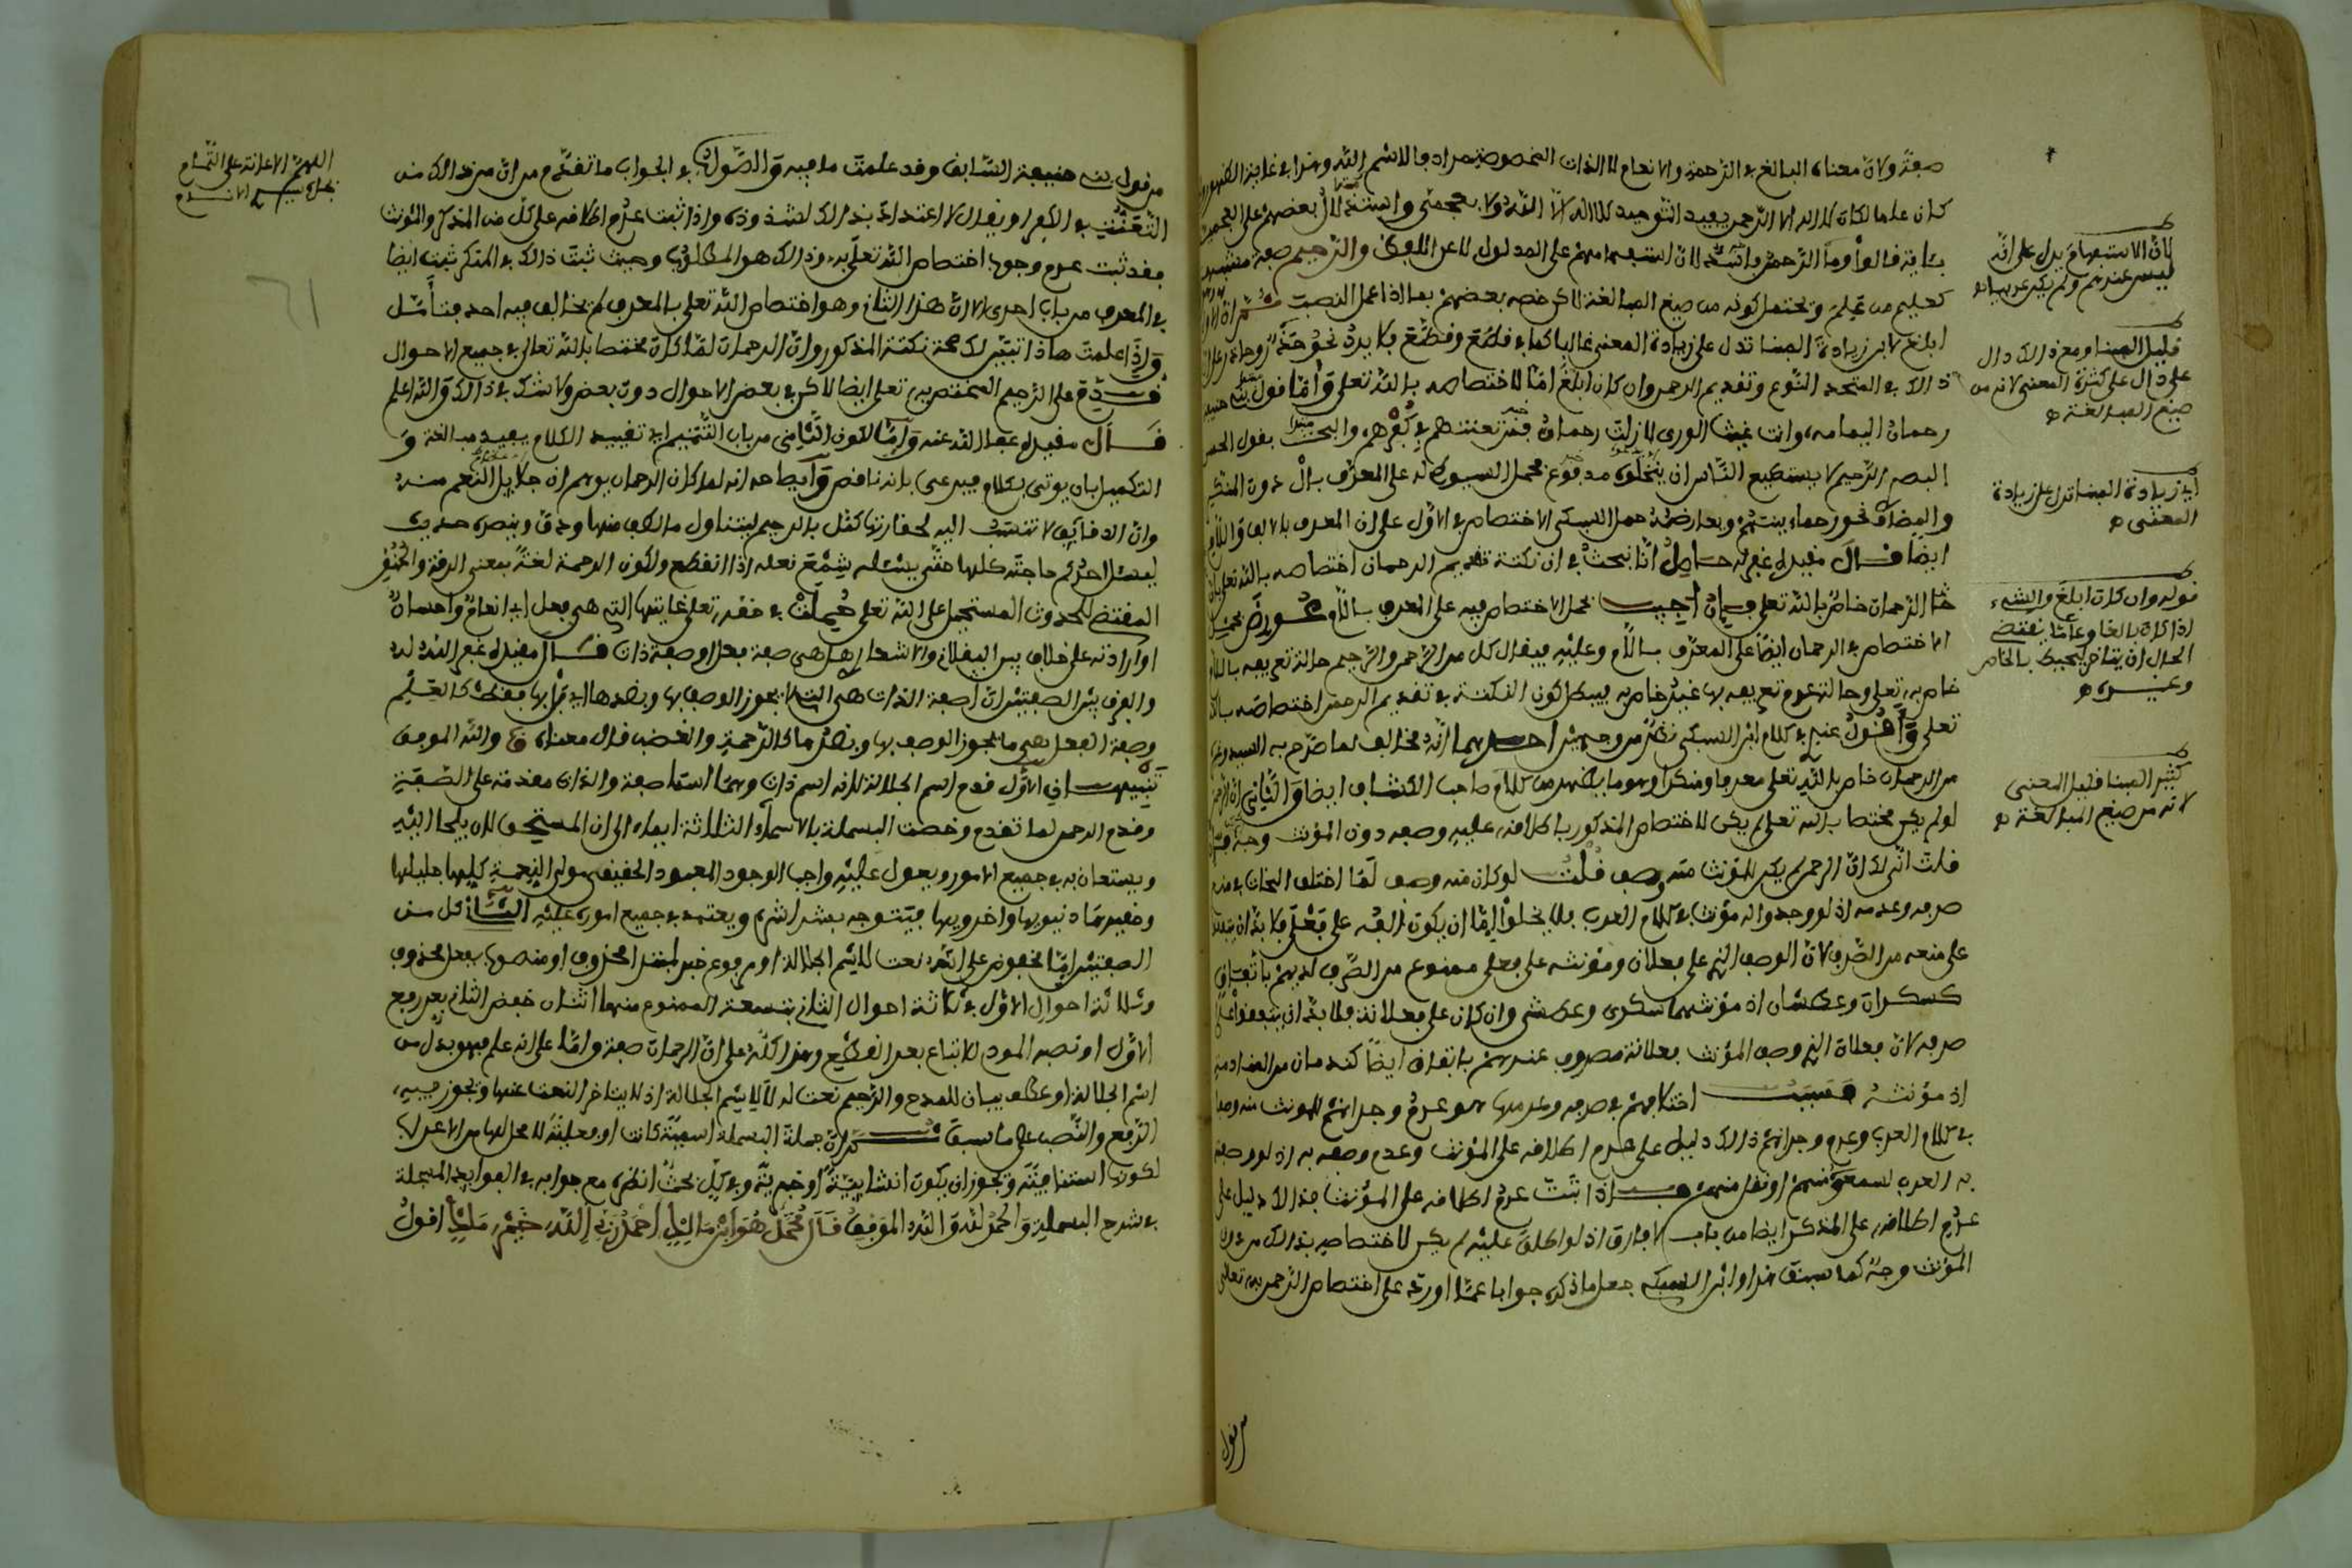 صفة ولان معناه البالغ في الرحمة والانعام لا الذات المخصوصة مرادفا لاسم الله وهذا في غاية الظهور
كان علما لكان لا اله الا الرحمن يفيد التوحيد لا اله الا الله ولا بعضهم على العجمية
بئاية قالوا وما الرحمن لان استفهامهم على المدلول لا عن اللفظ والرحيم صفة مشبهة
كعليم من علم ويحتمل كونه من صيغ المبالغة لاكن خصه بعضهم بما اذا عمل النصب ثم ان الاول
ابلغ لان زيادة البناء تدل على زيادة المعنى غالبا كما في قطع وقطّع فلا يرد نحو
ذالك في المتحد النوع وتقديم الرحمن وان كان ابلغ اما لاختصاصه بالله تعلى واما قول بني حنيفة
رحمان اليمامه وانت غيث الورى لا زلت رحمان فمن تعنتهم في كفرهم والبحث بقول الحسن
البصري الرحيم لا يستطيع الناس ان ينتحلوه مدفوع بحمل السيوطي له على المعرف بال دون المنكر
والمضاف نحو رحماء بينهم وبمعارضة حمل السبكي الاختصاص في الاول على ان المعرف بالالف واللام
ايضا قال مقيده غفر له حاصل انا نبحث في ان نكتة تقديم الرحمان اختصاصه بالله تعلى بان
خا الرحمان خاص بالله تعلى فان اجيب بحمل الاختصاص فيه على المعرف باللام عورض بحمل
الاختصاص في الرحمان ايضا على المعرف باللام وعليه فيقال كل من الرحمن والرحيم حالة تعريفه باللام
خاص به تعلى وحالة عدم تعريفه بها غير خاص به فيبطل كون النكتة في تقديم الرحمن اختصاصه بالله
تعلى واقول عنده في كلام ابن السبكي نظر من وجهين احدهما انه مخالف لما صرح به السيد وغيره
من الرحمان خاص بالله تعلى معرفا ومنكرا وهو ما يظهر من كلام صاحب الكشاف ايضا والثاني ان الرحمن
لو لم يكن مختصا بالله تعلى لم يكن لاختصاص المذكور باطلاقه عليه وصفه دون المؤنث وجه
فلت انى لك ان الرحمن لم يكن للمؤنث منه وصف قلت لو كان منه وصف لما اختلف النحات في منع
صرفه وعدمه اذ لو وجدوا له مؤنثا في كلام العرب فلا يخلوا اما ان يكون الفه على فعلى فلا بد ان يتفقوا
على منعه من الصرف لان الوصف الذي على فعلان ومؤنثه على فعلى ممنوع من الصرف لديهم باتفاق
كسكران وعطشان اذ مؤنثهما سكرى وعطشى وان كان على فعلانة فلا بد ان يتفقوا على
صرفه لان فعلان الذي وصف المؤنث فعلانة مصروف عندهم باتفاق ايضا كندمان من المنادمة
اذ مؤنثه فسبب اختلافهم في صرفه وعدمها هو عدم وجدانهم للمؤنث منه وصفا
في كلام العرب وعدم وجدانهم ذالك دليل على عدم اطلاقه على المؤنث وعدم وصفه به اذ لو وصفته
به العرب لسمعوه منهم او نقل منهم فاذا ثبت عدم اطلاقه على المؤنث فذالك دليل على
عدم اطلاقه على المذكر ايضا من باب لا فارق اذ لو اطلق عليه لم يكن لاختصاصه بذالك من دون
المؤنث وجه كما سبق هذا وابن السبكي جعل ما ذكره جوابا عما اورد على اختصاص الرحمن به تعالى
من قول
لان الاستفهام يدل على انه
ليس عندهم ولم يكن عربيا
قليل البناء ومع ذالك دال
على دال على كثرة المعنى لانه من
صيغ المبالغة
اي زيادة البناء تدل على زيادة
المعنى
قوله وان كان ابلغ والشيء
اذا كان بالغا وعاما يقتضي
الحال ان يتاخر ليحيط بالخاص
وغيره
كثير البناء قليل المعنى
لانه من صيغ المبالغة
من قول بني حنيفة السابق وقد علمت ما فيه والصواب في الجواب ما تقدم من ان من ذالك من
التعنت في الكفر او يقال لا اعتداد بذالك لشذوذه واذا ثبت عدم اطلاقه على كل من المذكر والمؤنث
فقد ثبت عدم وجود اختصاص الله تعلى به وذالك هو المطلوب وحيث ثبت ذالك في المنكر ثبت ايضا
في المعرف من باب احرى الا ان هذا الثاني وهو اختصاص الله تعلى بالمعرف لم يخالف فيه احد فتأمل
واذا علمت هاذا تبين لك صحة نكتة المذكور وان الرحمان لما كان مختصا بالله تعالى في جميع الاحوال
قدم على الرحيم المختص به تعلى ايضا لاكن في بعض الاحوال دون بعض ولا شك في ذالك والله اعلم
قال مقيده عفا الله عنه واما لكون الثاني من باب التتميم اي تقييد الكلام بفيد مبالغة و
التكميل بان يوتى بكلام فيرعى بانه ناقص وايضاحه انه لما كان الرحمان يوهم ان جلايل النعم منه
وان الدقايق لا تنسب اليه لحقارتها كمل بالرحيم ليتناول ما لطف منها ودق وينصره حديث
ليسئل احدكم حاجته كلها حتى يسئله شسع نعله اذا انقطع ولكون الرحمة لغة بمعنى الرقة والحنو
المقتضي للحدوث المستحيل على الله تعلى حملت في حقه تعلى غايتها التي هي فعل اي انعام واحسان
او ارادته على خلاف بين الباقلاني والاشعري هل هي صفة فعل او صفة ذات قال مقيده غفر الله له
والفرق بين الصفتين ان صفة الذات هي التي لا يجوز الوصف بها وبضدها اي فرد بها فقط كالعلم
وصفة الفعل هي ما يجوز الوصف بها وبضدها كالرحمة والغضب قال معناه والله الموفق
تنبيهان الاول قدم اسم الجلالة لانه اسم ذات وهما اسما صفة والذات مقدمة على الصفة
وقدم الرحمن لما تقدم وخصت البسملة بالاسماء الثلاثة ايماء الى ان المستحق لان يلجأ اليه
ويستعان به في جميع الامور ويعول عليه واجب الوجود المعبود الحقيقي مولي النعمة كلها جليلها
وحقيرها دنيويها واخرويها فيتوجه بشراشره ويعتمد في جميع اموره عليه الثاني كل من
الصفتين اما مخفوض على انه نعت لاسم الجلالة او مرفوع خبر لمبتدا محذوف او منصوب بفعل محذوف
وثلاثة احوال الاول في ثلاثة احوال الثاني بتسعة الممنوع منها اثنان خفض الثاني بعد رفع
الاول او نصبه المود للاتباع بعد القطع وهذا كله على ان الرحمان صفة واما على انه علم فهو بدل من
اسم الجلالة او عطف بيان للمدح والرحيم نعت له لا لاسم الجلالة اذ لا يتاخر النعت عنها ويجوز فيه
الرفع والنصب على ما سبق ثم ان جملة البسملة اسمية كانت او فعلية لا محل لها من الاعراب
لكونها استينافية ويجوز ان يكون انشايية او خبرية وفي كل بحث انظره مع جوابه في الفوايد المسجلة
في شرح البسملة والحمدلة والله الموفق قال محمد هو ابن مالك احمد ربي الله خير مالك اقول
اللهم الاعانة على التمام
بجاه
61